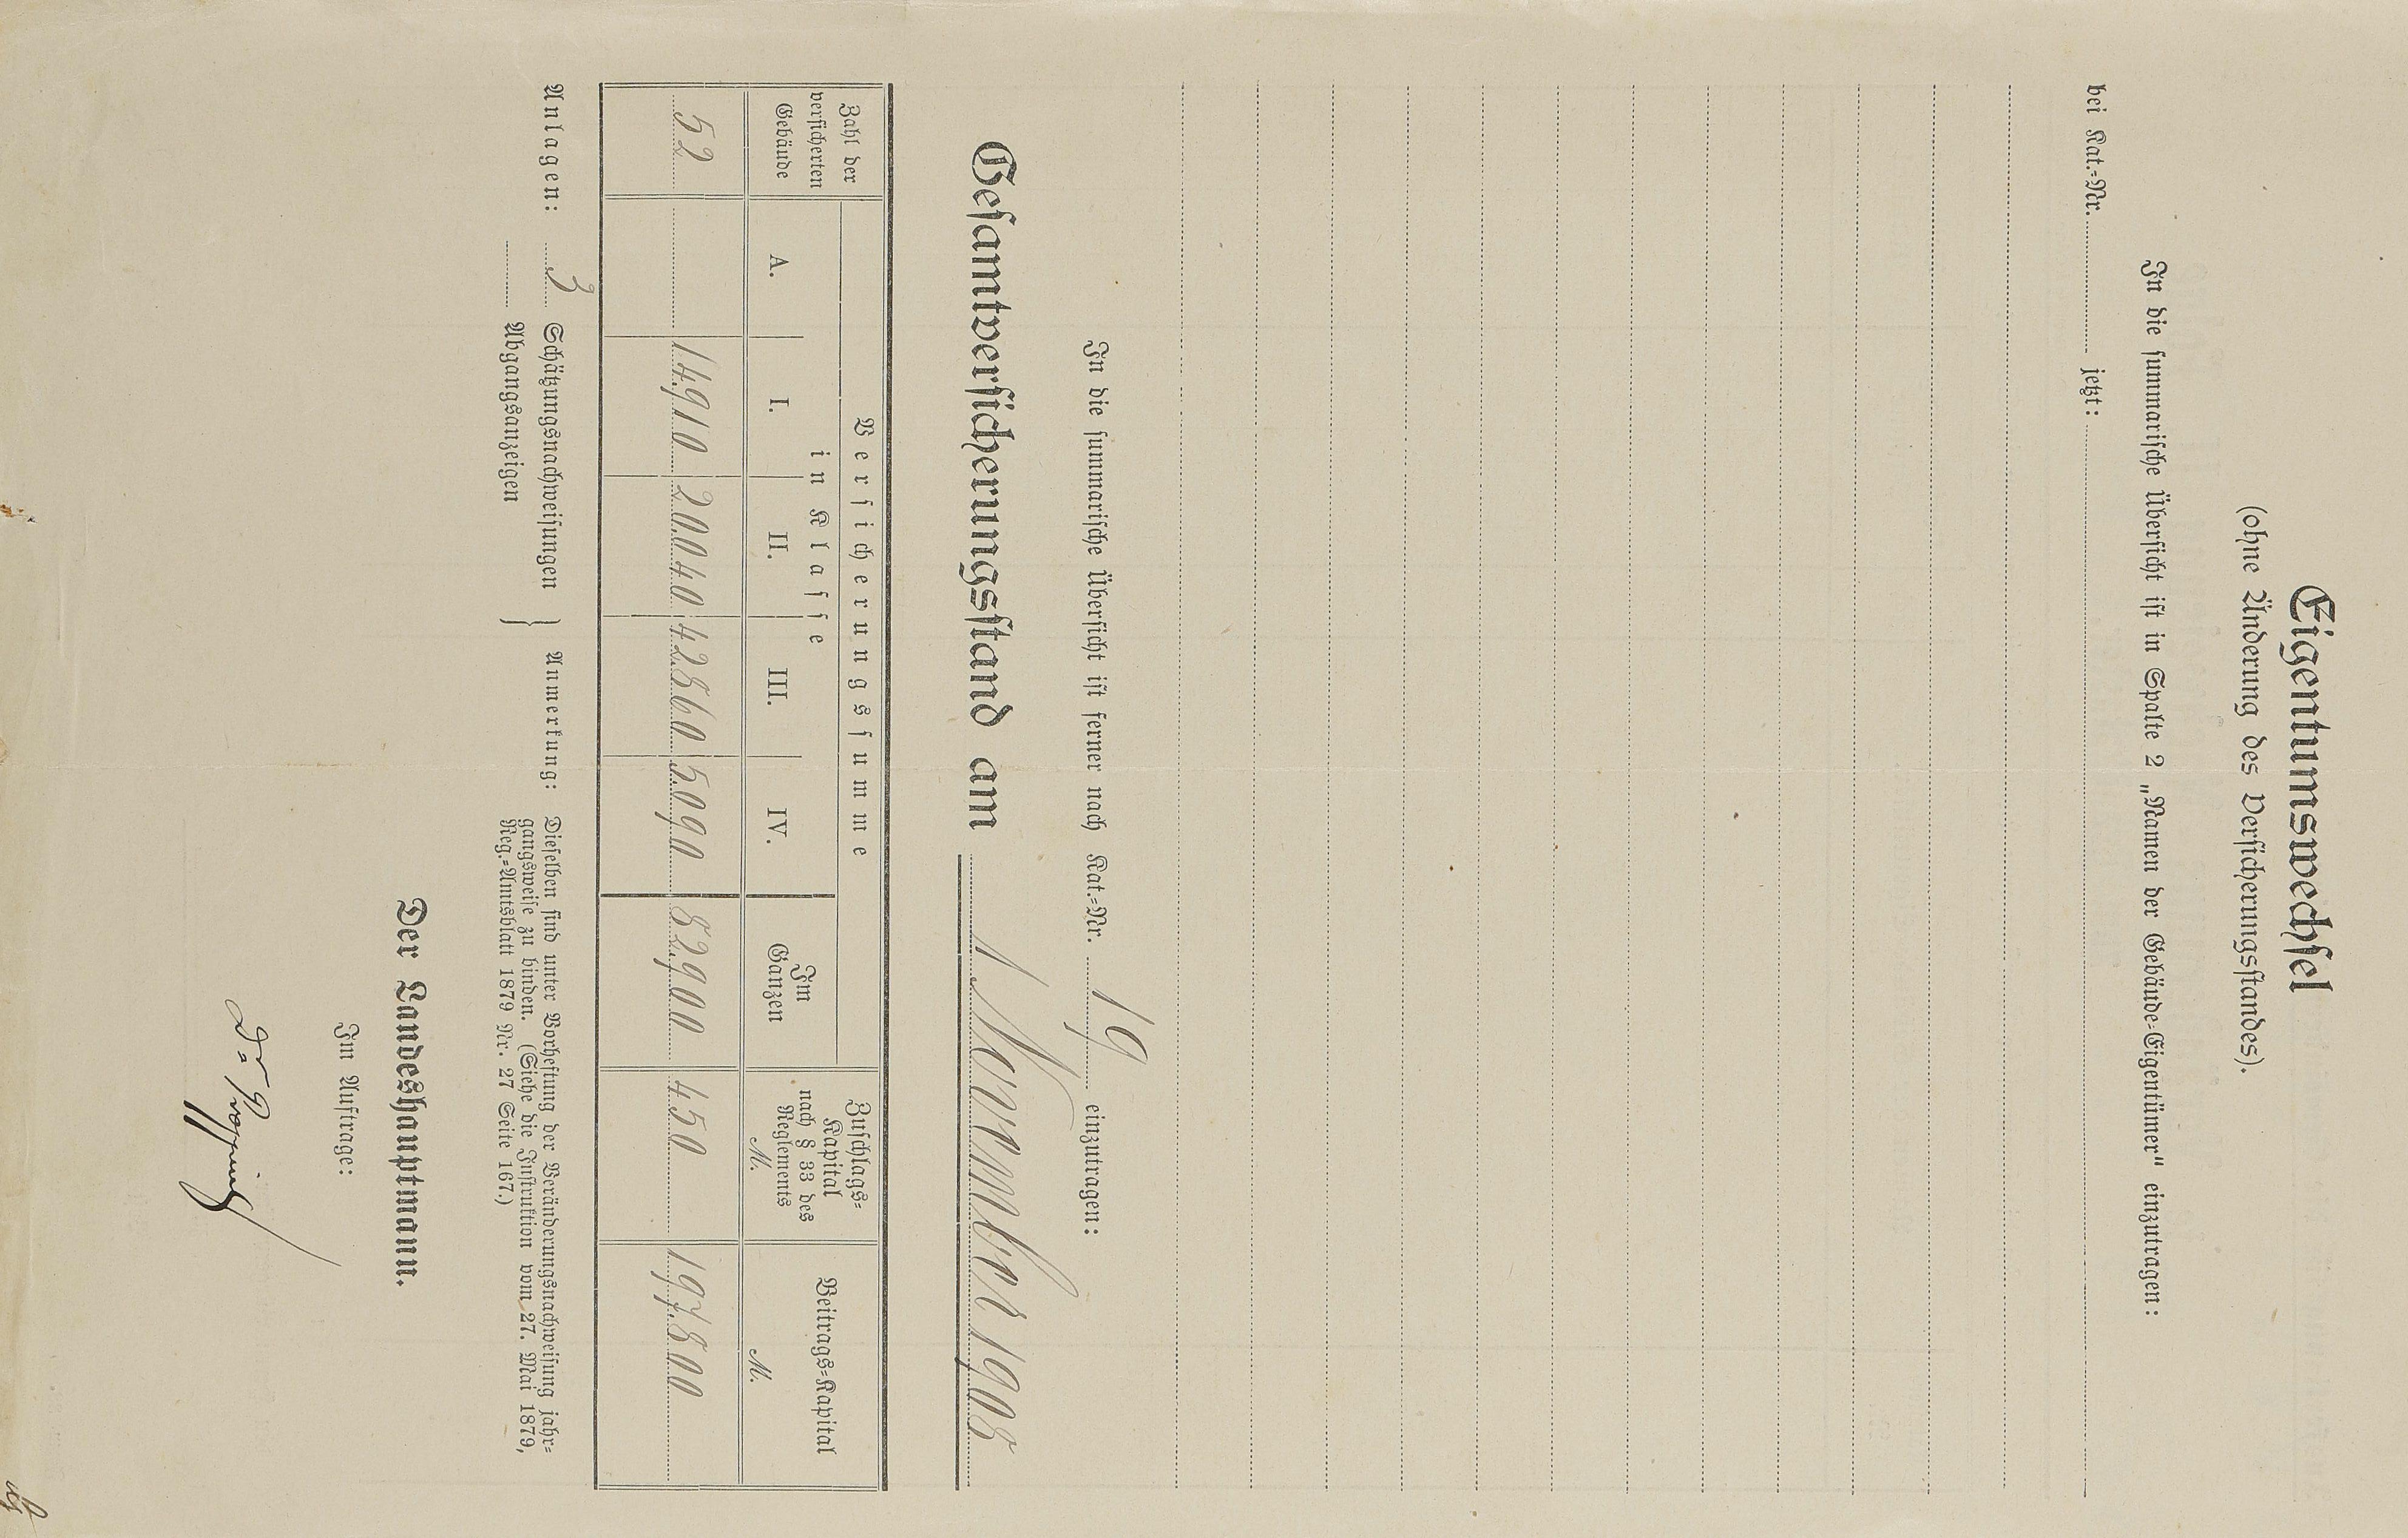 Eigentumswechsel
(ohne Änderung des Versicherungsstandes).
In die summarische Übersicht ist in Spalte 2 „Namen der Gebäude-Eigentümer" einzutragen:
bei Kat.-Nr. jetzt:
In die summarische Übersicht ist ferner nach Kat.-Nr. 19 einzutragen:
Gesamtversicherungsstand am 1 November 1908
Zahl der versicherten Gebäude
Versicherungssumme
in Klasse
A. I. II. III. IV.
Im Ganzen
Zuschlags-Kapital nach § 33 des Reglements M.
Beitrags-Kapital M.
52 14910 20040 42860 5090 82900 450 197800
Anlagen: 3 Schätzungsnachweisungen
Abgangsanzeigen
Anmerkung: Dieselben sind unter Vorheftung der Veränderungsnachweisung jahr-
gangsweise zu binden. (Siehe die Instruktion vom 27. Mai 1879,
Reg.-Amtsblatt 1879 Nr. 27 Seite 167.)
Der Landeshauptmann.
Im Auftrage: